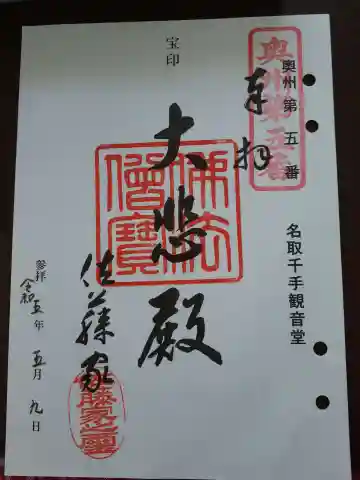 奥州第五番
奥州第五番
奉拝
名取千手観音堂
宝印
大悲殿
佛法僧寳
佐藤家
参拝
令和五年五月九日